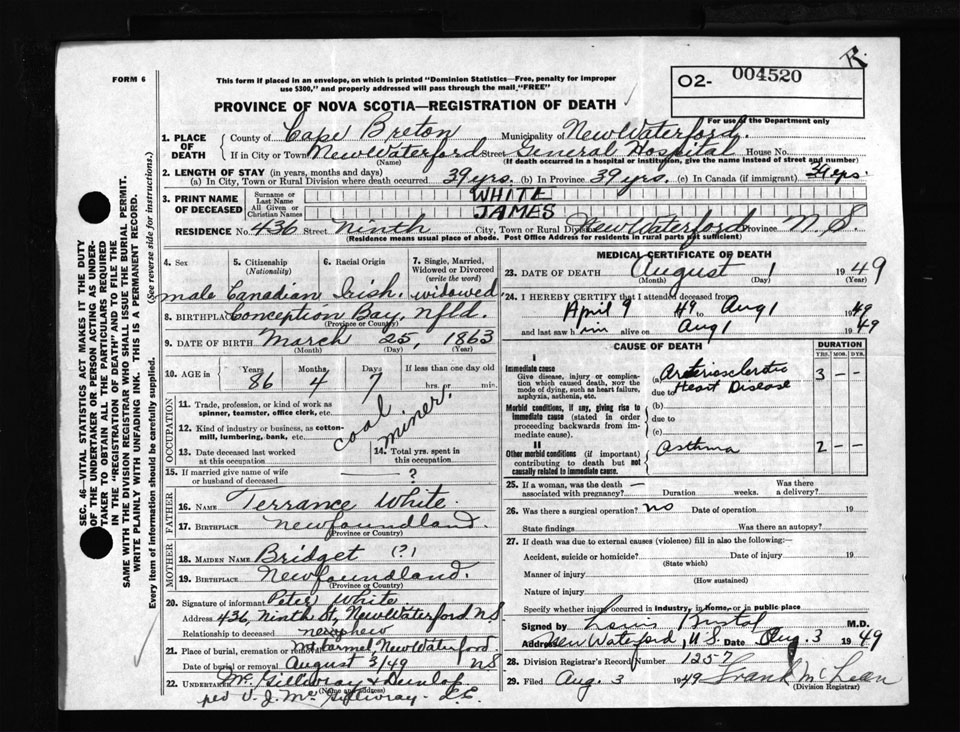 FORM 6
This form if placed in an envelope, on which is printed "Dominion Statistics—Free, penalty for improper
use $300," and properly addressed will pass through the mail "FREE"
R.
02- 004520
For use of the Department only
PROVINCE OF NOVA SCOTIA—REGISTRATION OF DEATH
1. PLACE OF DEATH
County of Cape Breton Municipality of New Waterford
If in City or Town New Waterford Street General Hospital House No.
(Name) (If death occurred in a hospital or institution, give the name instead of street and number)
2. LENGTH OF STAY (in years, months and days)
(a) In City, Town or Rural Division where death occurred 39 yrs. (b) In Province 39 yrs. (c) In Canada (if immigrant) 39 yrs.
3. PRINT NAME OF DECEASED
Surname or Last Name WHITE
All Given or Christian Names JAMES
RESIDENCE No. 436 Street Ninth City, Town or Rural Division New Waterford Province N.S.
(Residence means usual place of abode. Post Office Address for residents in rural parts not sufficient)
4. Sex 5. Citizenship (Nationality) 6. Racial Origin 7. Single, Married, Widowed or Divorced (write the word)
male Canadian Irish. widowed
8. BIRTHPLACE Conception Bay, Nfld.
(Province or Country)
9. DATE OF BIRTH March 25, 1863
(Month) (Day) (Year)
10. AGE in Years Months Days If less than one day
86 4 7 hrs. or min.
OCCUPATION
11. Trade, profession, or kind of work as spinner, teamster, office clerk, etc.
12. Kind of industry or business, as cotton-mill, lumbering, bank, etc.
coal miner.
13. Date deceased last worked at this occupation
14. Total yrs. spent in this occupation
15. If married give name of wife or husband of deceased — ?
FATHER
16. NAME Terrance White.
17. BIRTHPLACE Newfoundland.
(Province or Country)
MOTHER
18. MAIDEN NAME Bridget (?)
19. BIRTHPLACE Newfoundland.
(Province or Country)
20. Signature of informant Peter White
Address 436, Ninth St, New Waterford NS
Relationship to deceased nephew
21. Place of burial, cremation or removal Mt. Carmel, New Waterford.
Date of burial or removal August 3/49 NS
22. UNDERTAKER McGillivray & Dunlop
(Name and address)
per V. J. McGillivray
MEDICAL CERTIFICATE OF DEATH
23. DATE OF DEATH August 1 1949
(Month) (Day) (Year)
24. I HEREBY CERTIFY that I attended deceased from
April 9 49 to Aug 1 1949
and last saw him alive on Aug 1 1949
CAUSE OF DEATH DURATION
YRS. MOS. DYS.
I
Immediate cause
Give disease, injury or complication which caused death, NOT the mode of dying, such as heart failure, asphyxia, asthenia, etc.
(a) Arteriosclerotic 3 — —
due to Heart Disease
Morbid conditions, if any, giving rise to immediate cause (stated in order proceeding backwards from immediate cause).
(b)
due to
(c)
II
Other morbid conditions (if important) contributing to death but not causally related to immediate cause.
Asthma 2 — —
25. If a woman, was the death associated with pregnancy? — Duration weeks. Was there a delivery?
26. Was there a surgical operation? No Date of operation 19
State findings Was there an autopsy?
27. If death was due to external causes (violence) fill in also the following:—
Accident, suicide or homicide? Date of injury 19
(State which)
Manner of injury
(How sustained)
Nature of injury
Specify whether injury occurred in industry, in home, or in public place
Signed by M.D.
Address New Waterford, N.S. Date Aug. 3 1949
28. Division Registrar's Record Number 1257
29. Filed Aug. 3 1949 Frank McLean
(Division Registrar)
SEC. 46—VITAL STATISTICS ACT MAKES IT THE DUTY
OF THE UNDERTAKER OR PERSON ACTING AS UNDER-
TAKER TO OBTAIN ALL THE PARTICULARS REQUIRED
IN THE "REGISTRATION OF DEATH" AND TO FILE THE
SAME WITH THE DIVISION REGISTRAR WHO SHALL ISSUE THE BURIAL PERMIT.
WRITE PLAINLY WITH UNFADING INK. THIS IS A PERMANENT RECORD.
Every item of information should be carefully supplied. (See reverse side for instructions.)